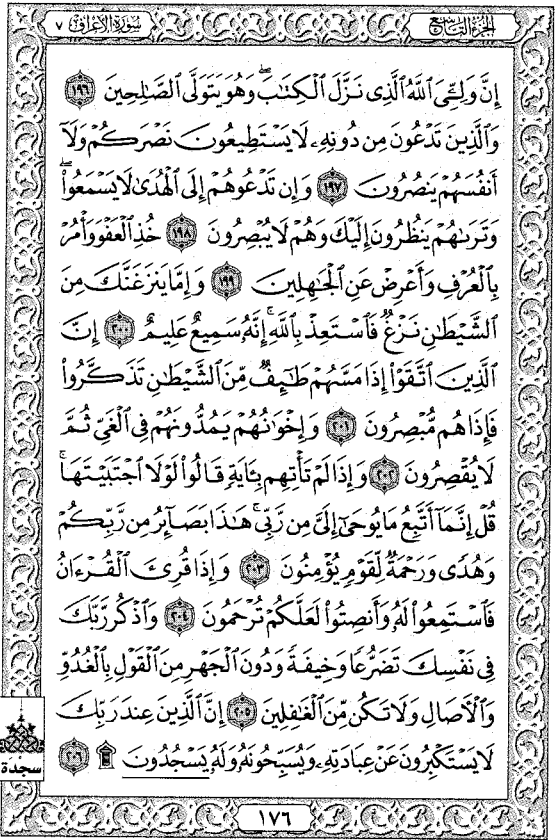 سُورَةُ الأَعْرَافِ ٧
الجُزْءُ التَّاسِعُ
إِنَّ وَلِـِّۧيَ ٱللَّهُ ٱلَّذِى نَزَّلَ ٱلْكِتَٰبَۖ وَهُوَ يَتَوَلَّى ٱلصَّٰلِحِينَ ١٩٦
وَٱلَّذِينَ تَدْعُونَ مِن دُونِهِۦ لَا يَسْتَطِيعُونَ نَصْرَكُمْ وَلَآ
أَنفُسَهُمْ يَنصُرُونَ ١٩٧ وَإِن تَدْعُوهُمْ إِلَى ٱلْهُدَىٰ لَا يَسْمَعُوا۟ۖ
وَتَرَىٰهُمْ يَنظُرُونَ إِلَيْكَ وَهُمْ لَا يُبْصِرُونَ ١٩٨ خُذِ ٱلْعَفْوَ وَأْمُرْ
بِٱلْعُرْفِ وَأَعْرِضْ عَنِ ٱلْجَٰهِلِينَ ١٩٩ وَإِمَّا يَنزَغَنَّكَ مِنَ
ٱلشَّيْطَٰنِ نَزْغٌ فَٱسْتَعِذْ بِٱللَّهِۚ إِنَّهُۥ سَمِيعٌ عَلِيمٌ ٢٠٠ إِنَّ
ٱلَّذِينَ ٱتَّقَوْا۟ إِذَا مَسَّهُمْ طَٰٓئِفٌ مِّنَ ٱلشَّيْطَٰنِ تَذَكَّرُوا۟
فَإِذَا هُم مُّبْصِرُونَ ٢٠١ وَإِخْوَٰنُهُمْ يَمُدُّونَهُمْ فِى ٱلْغَىِّ ثُمَّ
لَا يُقْصِرُونَ ٢٠٢ وَإِذَا لَمْ تَأْتِهِم بِـَٔايَةٍ قَالُوا۟ لَوْلَا ٱجْتَبَيْتَهَاۚ
قُلْ إِنَّمَآ أَتَّبِعُ مَا يُوحَىٰٓ إِلَىَّ مِن رَّبِّىۚ هَٰذَا بَصَآئِرُ مِن رَّبِّكُمْ
وَهُدًى وَرَحْمَةٌ لِّقَوْمٍ يُؤْمِنُونَ ٢٠٣ وَإِذَا قُرِئَ ٱلْقُرْءَانُ
فَٱسْتَمِعُوا۟ لَهُۥ وَأَنصِتُوا۟ لَعَلَّكُمْ تُرْحَمُونَ ٢٠٤ وَٱذْكُر رَّبَّكَ
فِى نَفْسِكَ تَضَرُّعًا وَخِيفَةً وَدُونَ ٱلْجَهْرِ مِنَ ٱلْقَوْلِ بِٱلْغُدُوِّ
وَٱلْءَاصَالِ وَلَا تَكُن مِّنَ ٱلْغَٰفِلِينَ ٢٠٥ إِنَّ ٱلَّذِينَ عِندَ رَبِّكَ
لَا يَسْتَكْبِرُونَ عَنْ عِبَادَتِهِۦ وَيُسَبِّحُونَهُۥ وَلَهُۥ يَسْجُدُونَ ۩ ٢٠٦
سجدة
١٧٦